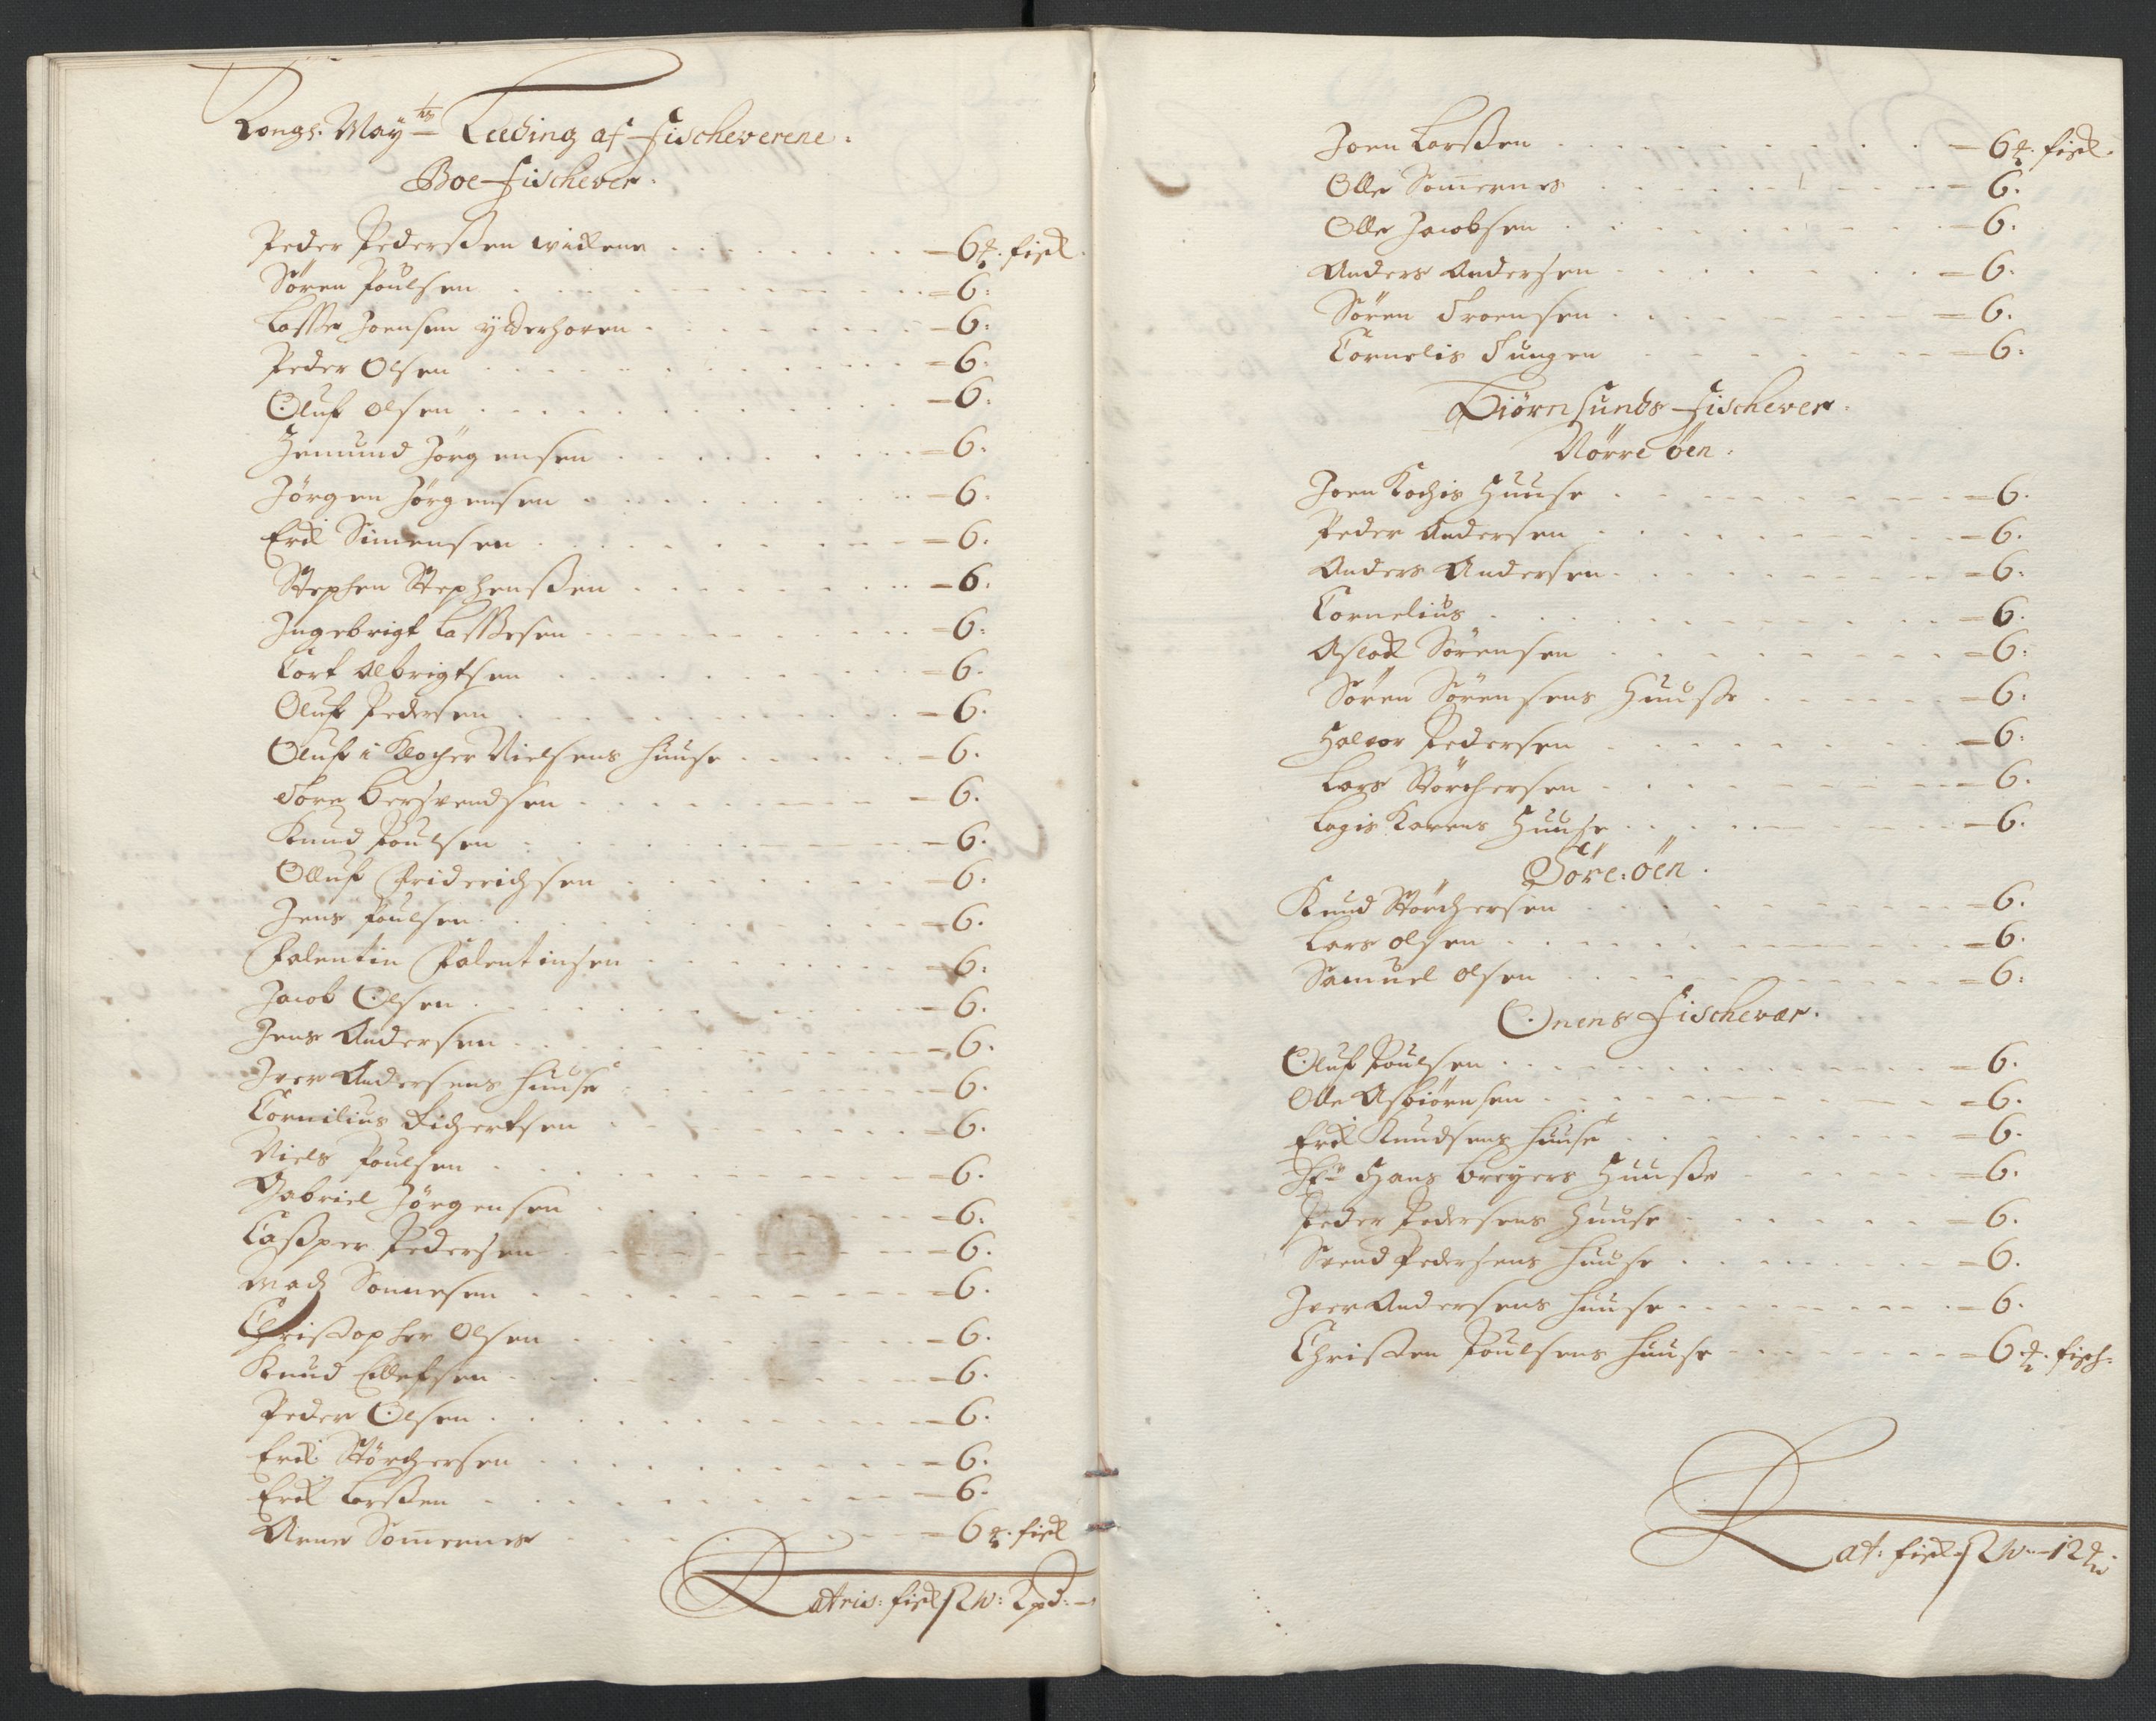 Kongl. May^ts Leeding af fischeverene.
Boe fischever.
Peder Pederssen widene - 6 ℔. fisk
Søren Poulsen - 6:
Lasse Joensen ytterhoven - 6:
Peder Olsen - 6:
Oluf olsen - 6:
Jemund Jørgensen - 6.
Jørgen Jørgensen - 6.
Erik Simensen - 6.
Stephen Stephenssen - 6.
Ingebrigt Lassesen - 6.
Cort Albrigtsen - 6.
Oluf Pedersen - 6.
Oluf i Klocher Nielsens huuse - 6.
Tore Bersvendsen - 6.
Knud Poulsen - 6.
Olluf Friderichsen - 6.
Jens Poulsen - 6.
Falentin Falentinsen - 6.
Jacob Olsen - 6.
Jens Andersen - 6.
Iver Andersens huuse - 6.
Cornilius Richertsen - 6.
Niels Poulsen - 6.
Gabriel Jørgensen - 6.
Cassper Pedersen - 6.
Mads Sonnesen - 6.
Christopher Olsen - 6.
Knud Ellefsen - 6.
Peder Olsen - 6.
Erik Størchersen - 6.
Erik Larssen - 6.
Arne Somernes - 6 ℔. fisk
Latris: fisk 2 W: 2 pd: -
Joen Larssen - 6 ℔. fisk.
Olle Somernes - 6.
Olle Jacobsen - 6.
Anders Andersen - 6.
Søren Troensen - 6.
Cornelis Tungen - 6:
Biørnsunds fischever.
Nørre øen.
Joen Kochis Huuse - 6.
Peder Andersen - 6.
Anders Andersen - 6:
Cornelius - 6.
Aslak Sørensen - 6:
Søren Sørensens Huusse - 6:
Halvor Pedersen - 6.
Lars Størchersen - 6.
Karens Huuse - 6.
Søre: øen.
Knud Størchersen - 6.
Lars olsen - 6.
Samuel olsen - 6:
Onens fischevær.
Oluf Poulsen - 6.
Olle Asbiørnsen - 6.
Erik Knudsens huuse - 6.
Hr Hans Breyers Huusse - 6.
Peder Pedersens Huuse - 6.
Svend Pedersens huuse - 6.
Iver Andersens huuse - 6.
Christen Poulsens huuse - 6 ℔. fisch:
Lat: fisk 2 W - 12 ℔